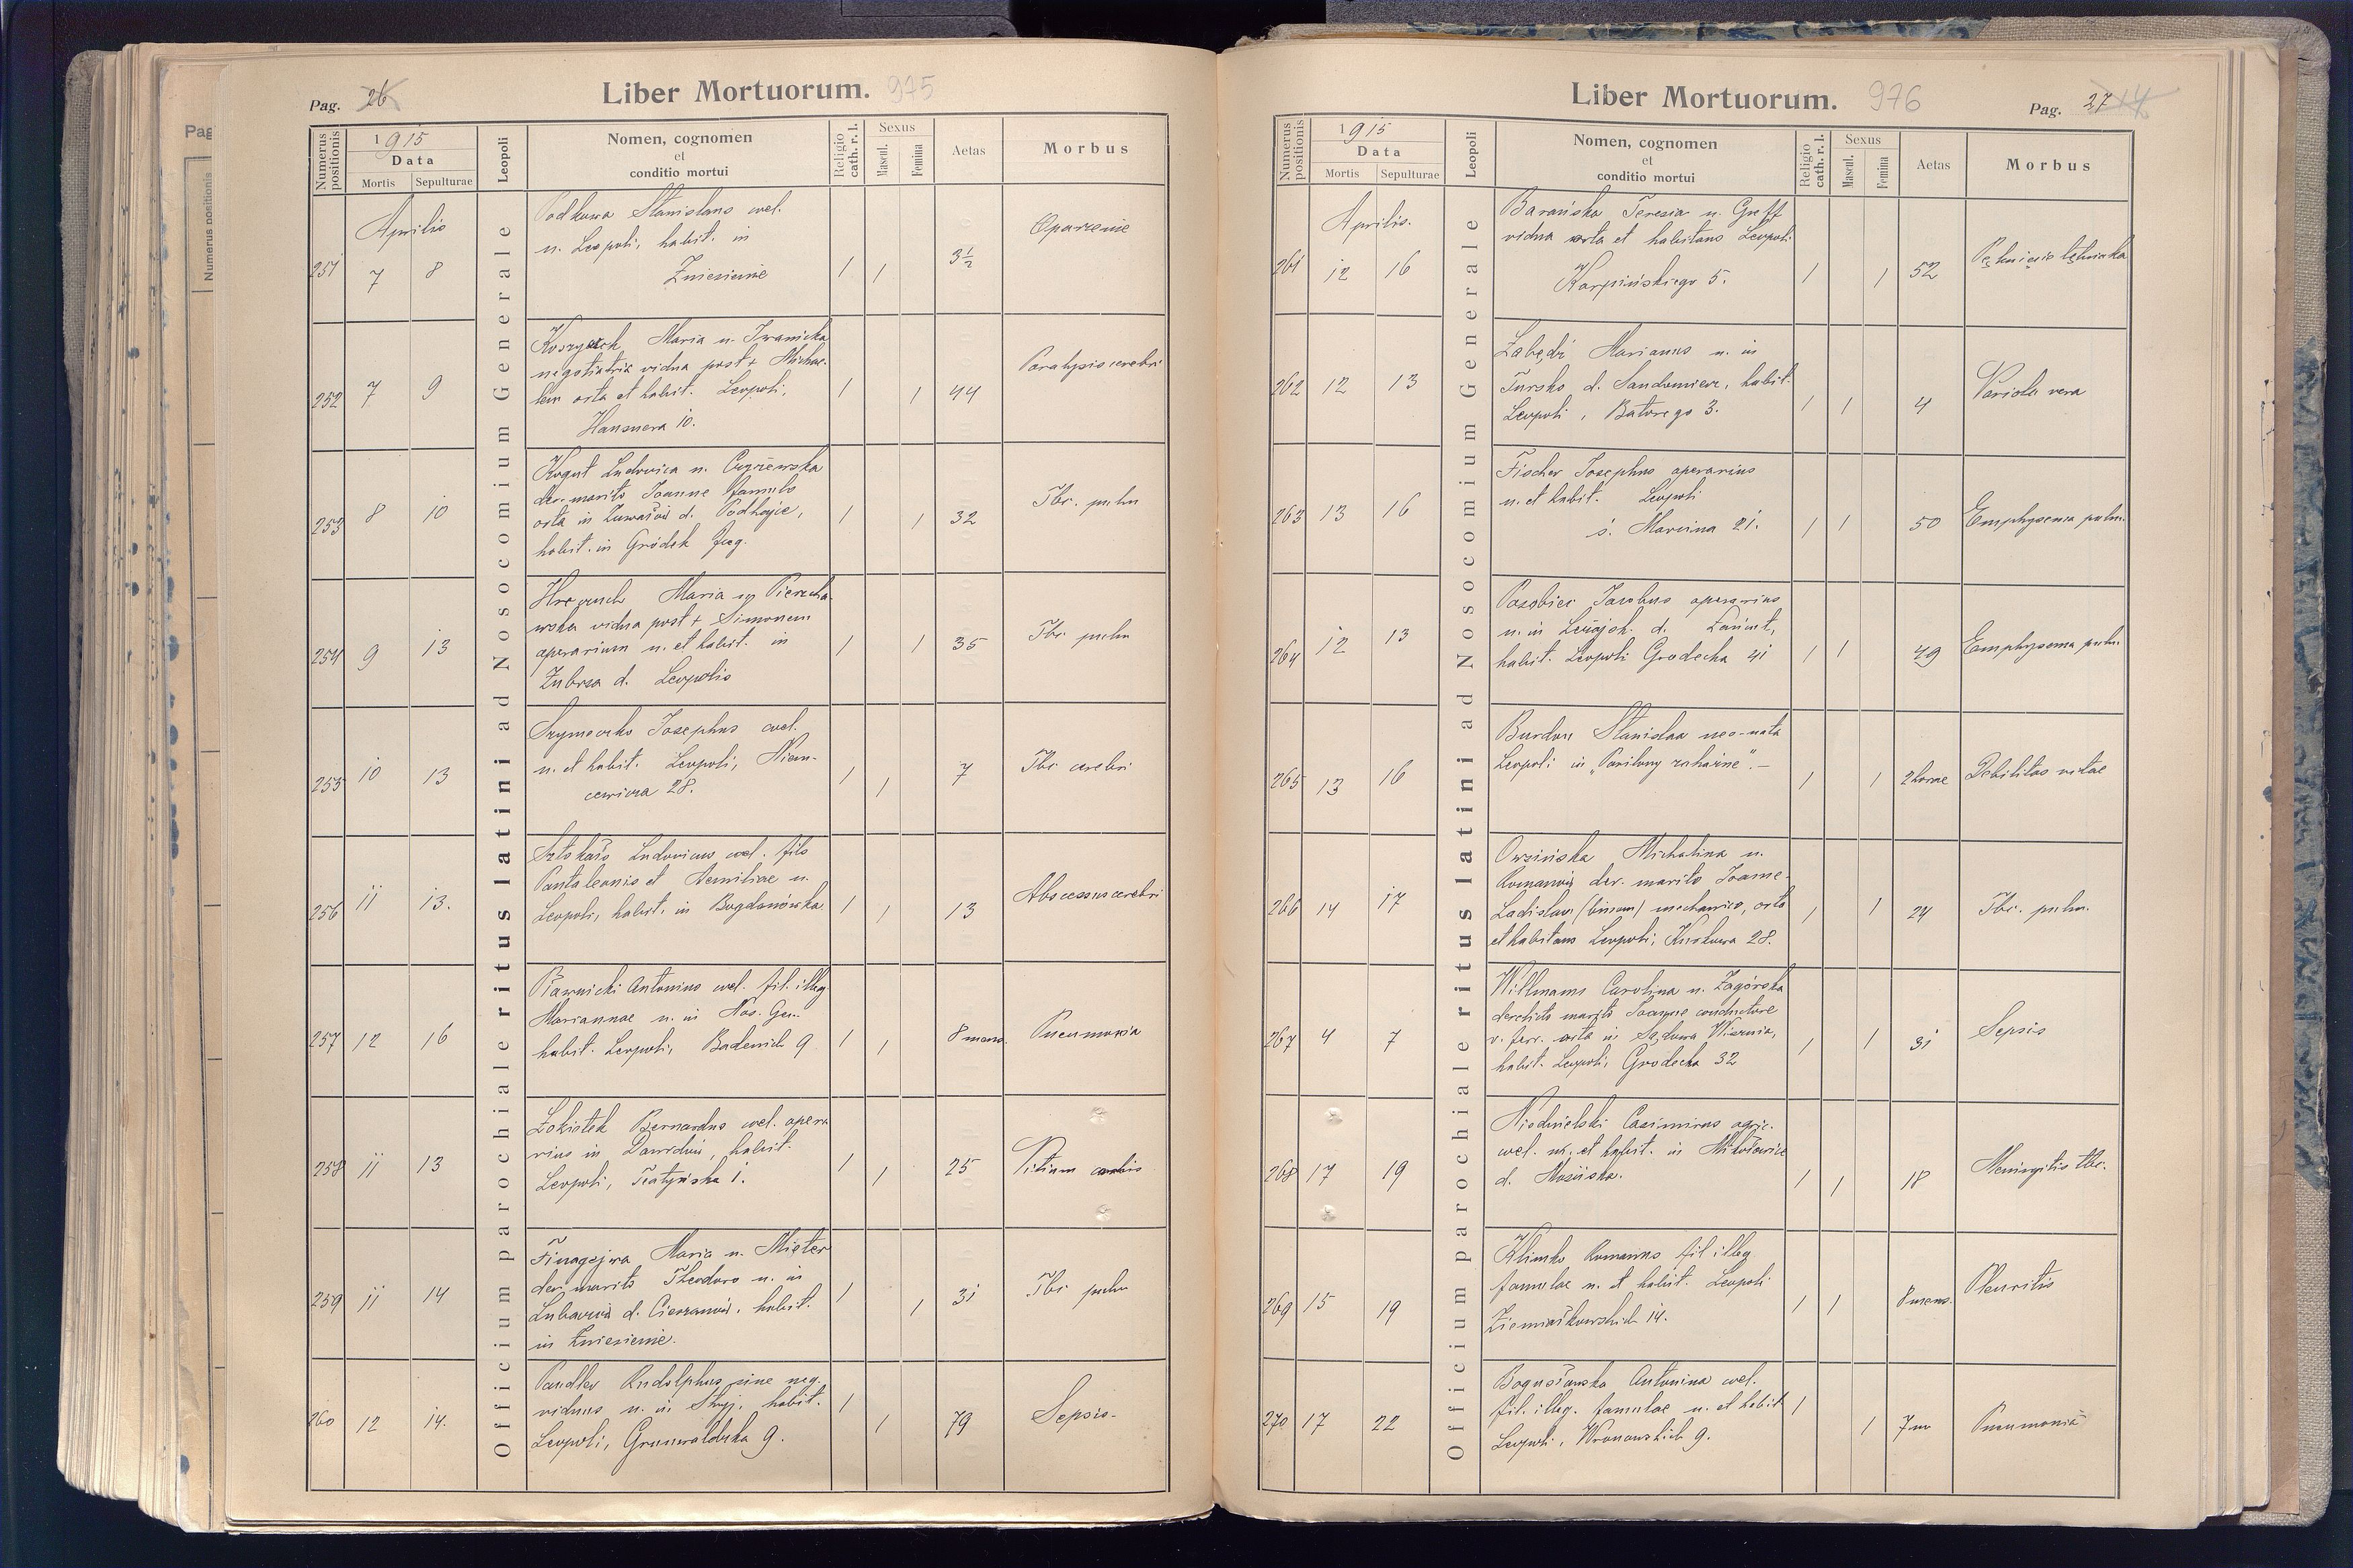 Liber Mortuorum. 975
Pag. 26
Numerus positionis
1915
Data
Mortis Sepulturae
Leopoli
Nomen, cognomen
et
conditio mortui
Religio cath. r. l.
Sexus
Mascul. Femina
Aetas
Morbus
Officium parochiale ritus latini ad Nosocomium Generale
Aprilis
251 7 8
Podkowa Stanislaus cael.
n. Leopoli, habit. in
Zniesienie
1 1 3½ Oparzenie
252 7 9
Maria n. Iwanicka
negotiatrix vidua post + Michae-
lem orta et habit. Leopoli,
Hausnera 10.
1 1 44 Paralysis cerebri
253 8 10
Kogut Ludovica n.
der. marito Joanne famulo
orta in d. Podhajce,
habit. in Gródek Jag.
1 1 32 Tbc. pulm
254 9 13
Maria n. Pierzcha-
wska vidua post + Simonem
operarium n. et habit. in
Zubrza d. Leopolis
1 1 35 Tbc. pulm
255 10 13
Josephus cael.
n. et habit. Leopoli, Niem-
cewicza 28.
1 1 7 Tbc. cerebri
256 11 13.
Ludovicus cael. fils
Pantaleonis et Aemiliae n.
Leopoli, habit. in Bogdanówka
1 1 13 Abscessus cerebri
257 12 16
Antonius cael. fil. illeg.
Mariannae n. in Nos. Gen.
habit. Leopoli, Badenich 9
1 1 8 mens. Pneumonia
258 11 13
Łokietek Bernardus cael. opera
rius in Dawidów, habit.
Leopoli, 1.
1 1 25 Vitium cordis
259 11 14
Maria n. Mieter
der. marito Theodoro n. in
Lubaczów d. Cieszanów, habit.
in Zniesienie.
1 1 31 Tbc. pulm
260 12 14.
Rudolphus sine neg.
viduus n. in Stryj, habit.
Leopoli, Grunwaldzka 9.
1 1 79 Sepsis.
Liber Mortuorum. 976
Pag. 27 14
Numerus positionis
1915
Data
Mortis Sepulturae
Leopoli
Nomen, cognomen
et
conditio mortui
Religio cath. r. l.
Sexus
Mascul. Femina
Aetas
Morbus
Officium parochiale ritus latini ad Nosocomium Generale
Aprilis.
261 12 16
Barańska Teresia n. Greff
vidua orta et habitans Leopoli
Karpińskiego 5.
1 1 52 Pęknięcie tętniaka
262 12 13
Łabędź Marianus n. in
Tursko d. Sandomierz, habit.
Leopoli, Batorego 3.
1 1 4 Variola vera
263 13 16
Fischer Josephus operarius
n. et habit. Leopoli
ś. Marcina 21.
1 1 50 Emphysema pulm.
264 12 13
Pasobiec Jacobus operarius
n. in Leżajsk d. Łańcut,
habit. Leopoli Grodecka 41
1 1 49 Emphysema pulm.
265 13 16
Burdon Stanislaa neo-nata
Leopoli in „Pawilony zakaźne”.—
1 1 2 horae Debilitas vitae
266 14 17
Michalina n.
Romanów der. marito Joanne
Ladislao (binom) mechanico, orta
et habitans Leopoli, 28.
1 1 24 Tbc. pulm.
267 4 7
Willmann Carolina n. Zagórska
derelicta marito Joanne conductore
v. ferr. orta in Sądowa Wisznia,
habit. Leopoli, Grodecka 32
1 1 31 Sepsis
268 17 19
Niedzielski Casimirus agric.
cael. n. et habit. in
d. Mościska.
1 1 18 Meningitis tbc.
269 15 19
Klimko Romanus fil. illeg.
famulae n. et habit. Leopoli
Ziemiałkowskich 14.
1 1 8 mens. Pleuritis
270 17 22
Bogusławska Antonina cael.
fil. illeg. famulae n. et habit
Leopoli, Wronowskich 9.
1 1 7 m Pneumonia